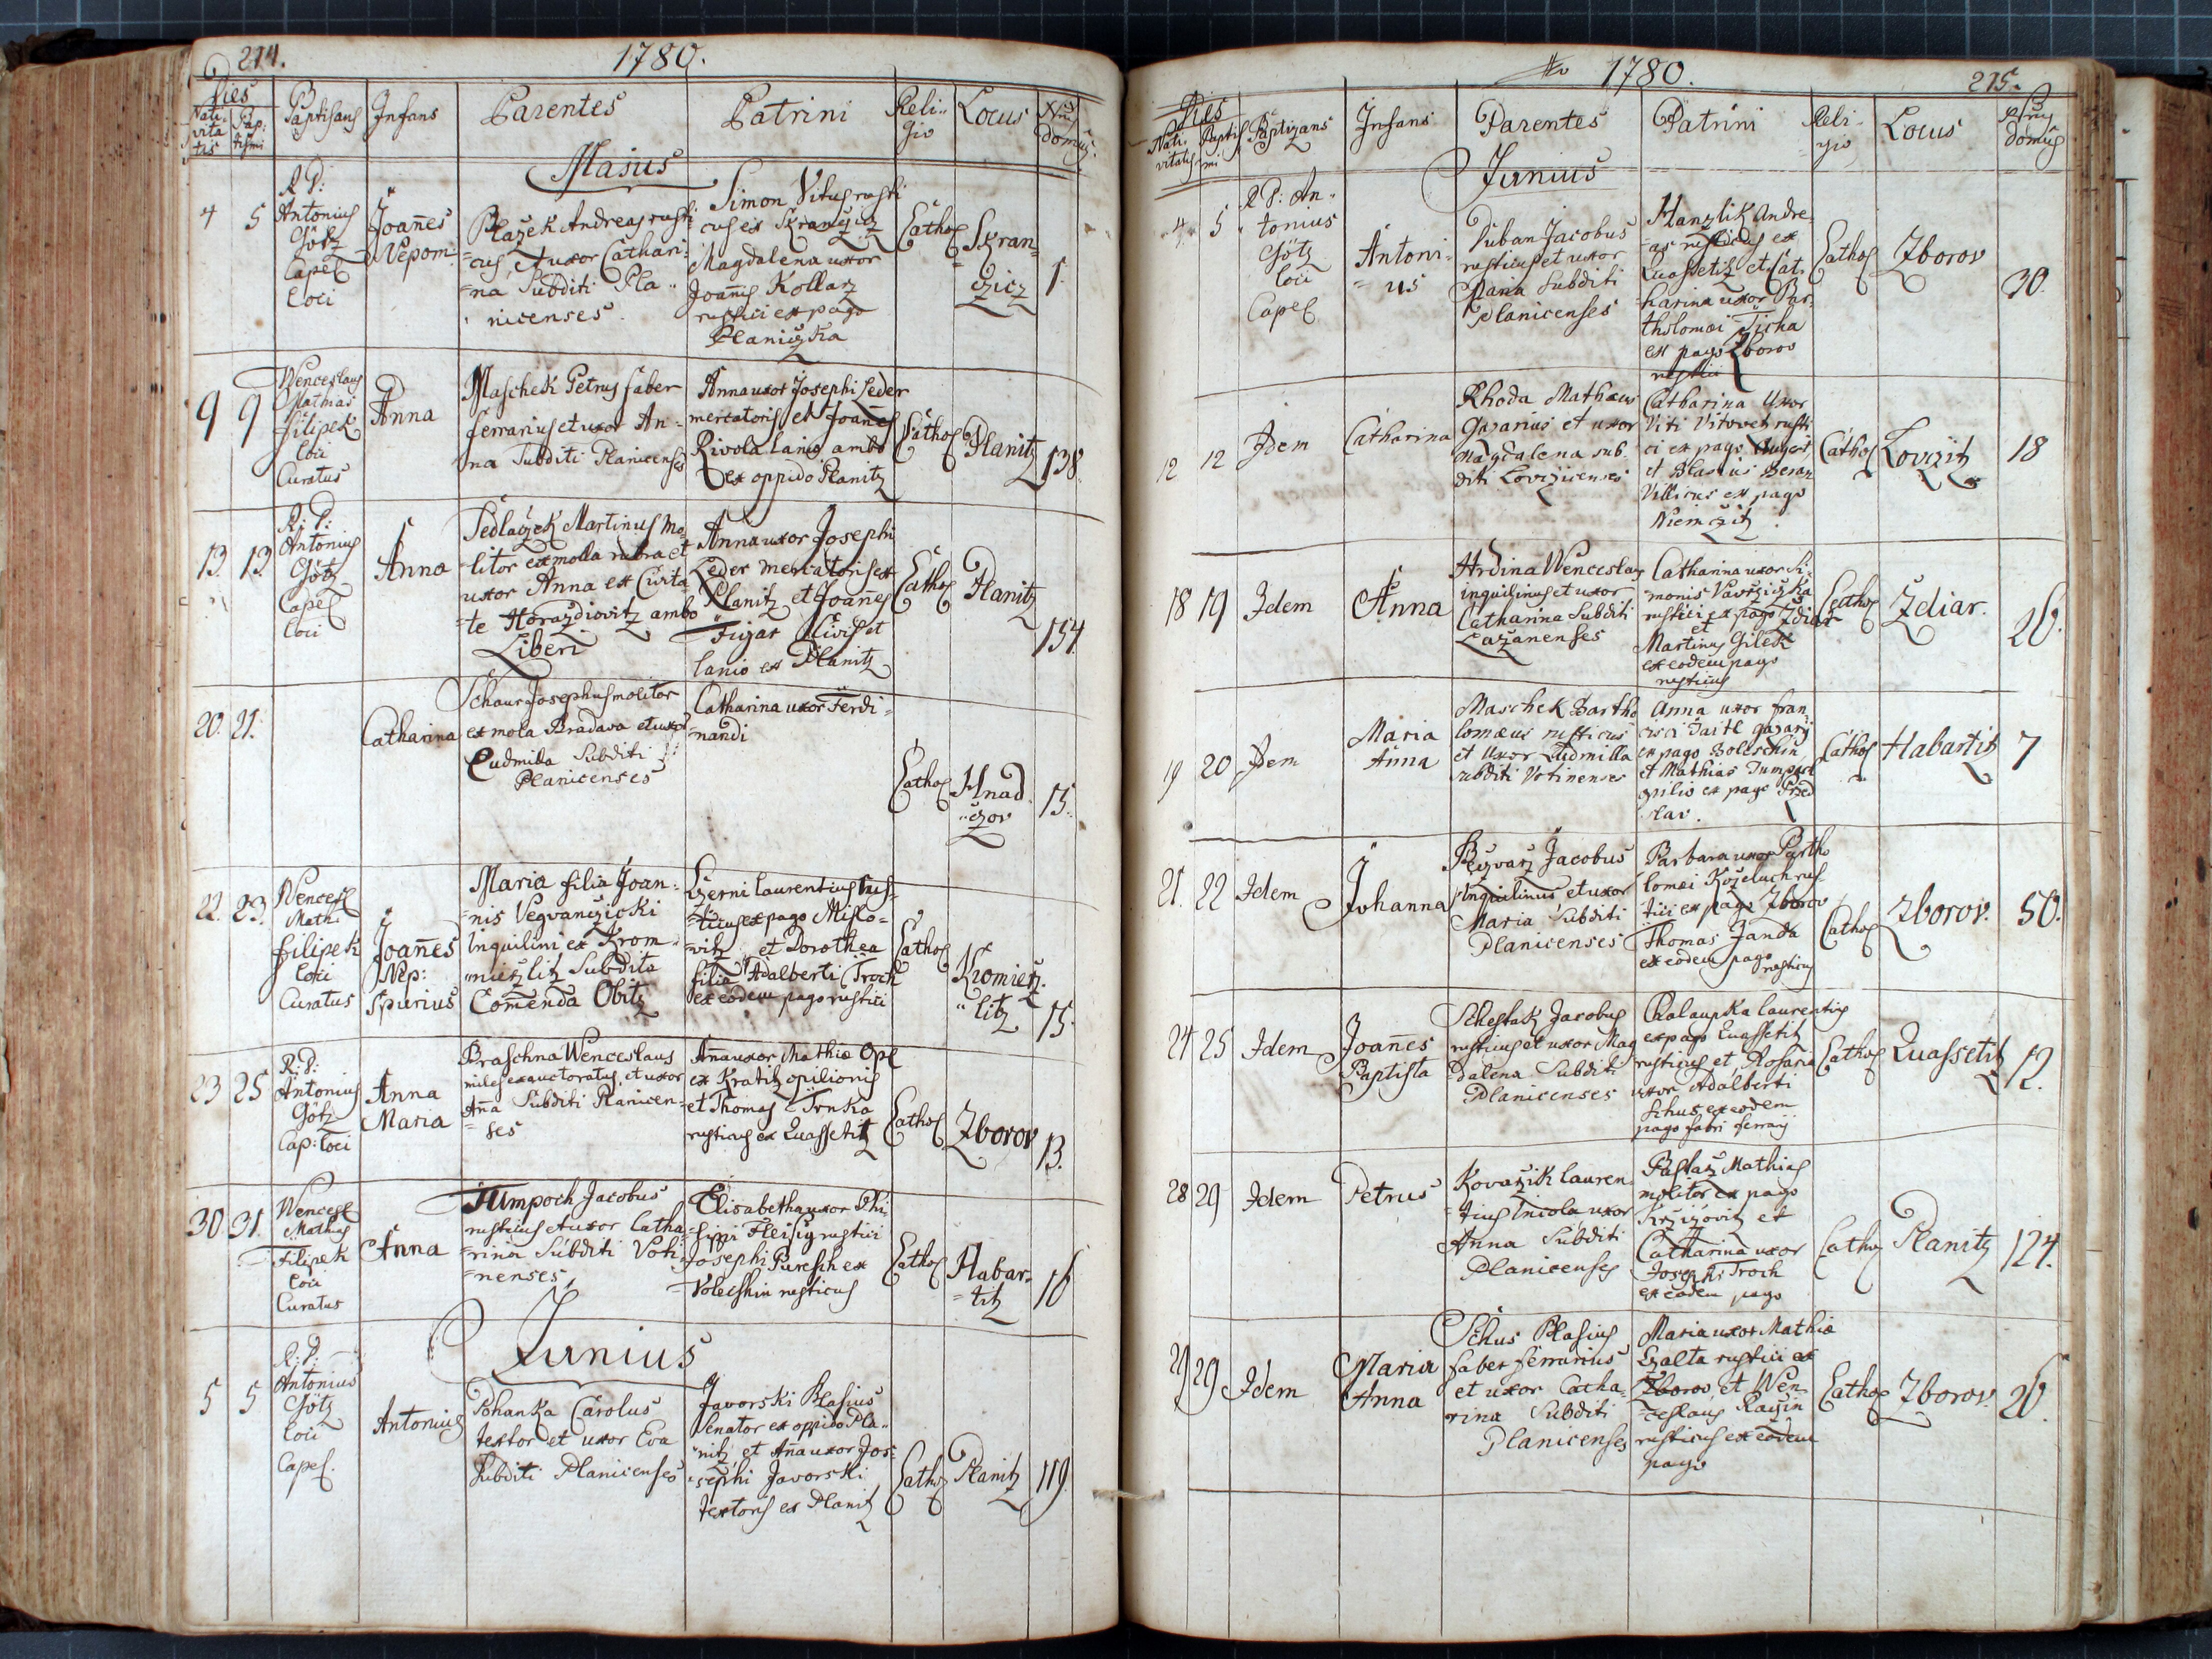 214.
1780.
Dies
Nati-
vita
tis
Bap:
tismi
Baptisans
Infans
Parentes
Patrini
Reli-
gio
Locus
Nrus
domus.
Maius
4
5
R. P:
Antonius
Götz
Capel
loci
Joañes
Nepom:
Blažek Andreas rusti-
cus, et uxor Cathari-
na Subditi Pla-
nicenses.
Simon Vitus rusti
cus es Skranczicz
Magdalena uxor
Joañis Kollarz
rustici ex pago
Planiczka
Cathol
Skran-
czicz
1.
9
9
Wenceslaus
Mathias
Filipek
loci
Curatus
Anna
Maschek Petrus faber
ferrarius et uxor An-
na Subditi Planicenses
Anna uxor Josephi Leder
mercatoris et Joañes
Rivola lanio ambo
ex oppido Planitz
Cathol
Planitz
138.
13.
13
R: P:
Antonius
Götz
Capel
loci
Anna
Sedlaczek Martinus mo-
litor ex molla rubra et
uxor Anna ex Civita-
te Horazdiovitz ambo
Liberi
Anna uxor Josephi
Leder mercatoris ex
Planitz et Joañes
Figar Civis et
lanio ex Planitz
Cathol
Planitz
154.
20.
21.
Catharina
Schaur Josephus molitor
ex mola Bradava et uxor
Ludmila Subditi
Planicenses
Catharina uxor Ferdi-
nandi
Cathol
Hnad
czov
15.
22.
23.
Wencesl
Mathi
Filipek
loci
Curatus
Joañes
Nep:
Spurius
Maria filia Joan-
nis Vegvanczicki
Inquilini ex Krom-
mieszlitz Subdita
Comenda Obitz
Czerni laurentius rus-
ticus ex pago Mislo-
witz et Dorothea
filia Adalberti Troch
ex eodem pago rustici
Cathol
Kromiesz.
litz
15.
23
25
R: P:
Antonius
Götz
Cap: loci
Anna
Maria
Praschna Wenceslaus
miles exauctoratus, et uxor
Aña Subditi Planicen-
ses
Aña uxor Mathiæ Opl
ex Kratitz opilionis
et Thomas Trnka
rusticus ex Quassetitz
Cathol
Zborov
13.
30.
31.
Wencesl
Mathias
Filipek
loci
Curatus
Anna
Tumpoch Jacobus
rusticus et uxor Catha-
rina Subditi Voti-
nenses,
Elisabetha uxor Phi-
lippi Fleisig rustici
Josephi Puresch ex
Voleschin rusticus
Cathol
Habar-
titz
16
Junius
5
5
R: P:
Antonius
Götz
loci
Capel.
Antonius
Pohanka Carolus
textor et uxor Eva
Subditi Planicenses
Javorski Blasius
Senator ex oppido Pla-
nitz, et Aña uxor Jo-
sephi Javorski
textoris ex Planitz
Cathol
Planitz
119.
1780.
215.
Dies
Nati-
vitatis
Baptis
mi
Baptizans
Infans
Parentes
Patrini
Reli-
gio
Locus
Nrus
domus
Junius
4.
5
R P: An-
tonius
Götz
loci
Capel
Antoni-
us
Duban Jacobus
rusticus et uxor
Mana Subditi
Planicenses
Hanzlik Andre-
as rusticus ex
Quassetitz et Cat-
harina uxor Bar-
tholomæi Ticha
ex pago Zboro
rustici
Cathol
Zborov
30.
12
12
Idem
Catharina
Rhoda Mathæus
Gazarius et uxor
Magdalena sub-
diti Lovizicenses
Catharina Uxor
Viti Vitovetz rusti
ci ex pago Augezt,
et Blasius Beran
Villicus ex pago
Niemczitz.
Cathol
Lovizitz
18
18
19
Idem
Anna
Hrdina Wenceslaus
inquilinus et uxor
Catharina Subditi
Lazanenses
Catharina uxor Si-
monis Vavrziczka
rustici ex pago Zdiar
et
Martinus Gilek
ex eodem pago
rusticus
Cathol
Zdiar.
26.
19
20
Idem
Maria
Anna
Maschek Bartho
lomæus rusticus
et Uxor Ludmilla
subditi Votinenses
Anna uxor fran
cisci Jaitl gazarij
ex pago Bolleschin
et Mathias Tumpach
opilio ex pago Przed
slav.
Cathol
Habartitz
7
21.
22
Idem
Johanna
Bezvarz Jacobus
Inquilinus et uxor
Maria Subditi
Planicenses
Barbara uxor Bartho
lomæi Kozeluch rus
tici ex pago Zborov
Thomas Janda
ex eodem pago
rusticus
Cathol
Zborov.
50.
24
25
Idem
Joañes
Baptista
Schestak Jacobus
rusticus et uxor Mag
dalena Subditi
Planicenses
Chalaupka laurentius
ex pago Quassetitz
rusticus et Rosaria
uxor Adalberti
Schus ex eodem
pago fabri ferrarij
Cathol
Quassetitz
12.
28
29
Idem
Petrus
Kovarzik lauren-
tius Incola uxor
Anna Subditi
Planicenses
Paslarz Mathias
molitor ex pago
Krzizovitz et
Catharina uxor
Josephi Troch
ex eodem pago
Cathol
Planitz
124.
29
29
Idem
Maria
Anna
Schus Blasius
faber ferrarius
et uxor Catha-
rina Subditi
Planicenses
Maria uxor Mathiæ
Czalta rustici ex
Zborov, et Wen-
ceslaus Raczin
rusticus ex eodem
pago
Cathol
Zborov.
26.